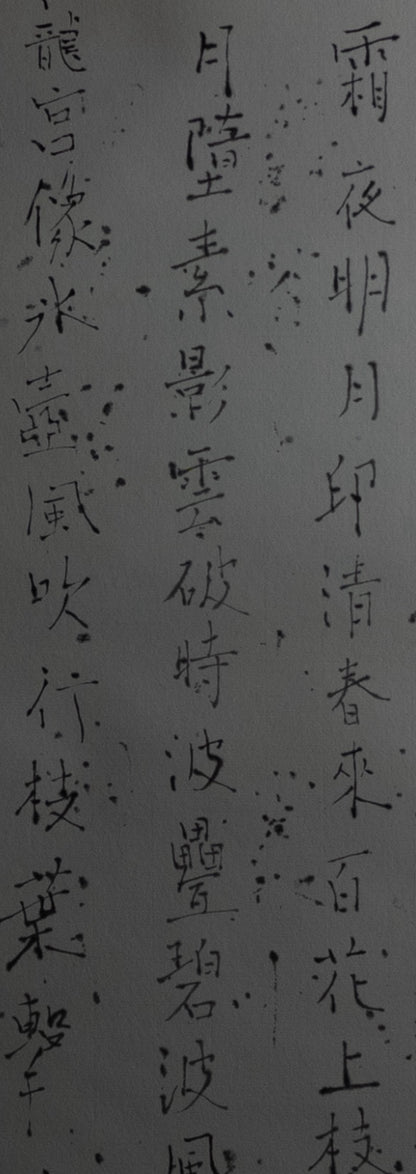 霜夜明月印清春來百花上枝
月墮素影雲破時波疊碧波風
龍宮像氷壺風吹行棱葉擊